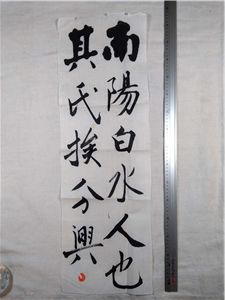 南陽白水人也
其氏挨分興